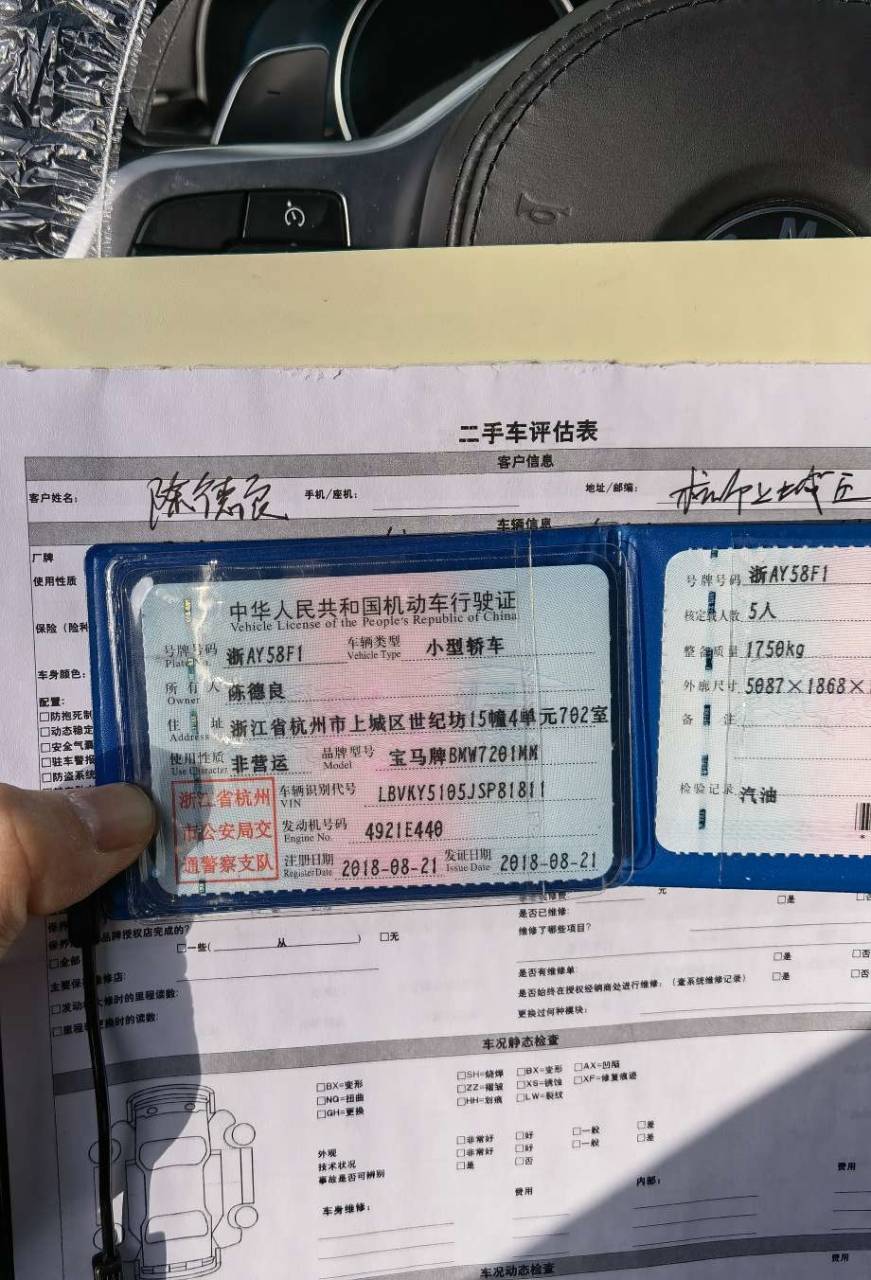 M
二手车评估表
客户信息
客户姓名: 陈德良 手机/座机: 地址/邮编: 杭州市上城区
车辆信息
厂牌
使用性质
车身颜色:
配置:
□动态稳定
□安全气囊
□驻车警报
□防盗系统
中华人民共和国机动车行驶证
Vehicle License of the People's Republic of China
号牌号码 浙AY58F1 车辆类型 小型轿车
Plate No. Vehicle Type
所有人 陈德良
Owner
住址 浙江省杭州市上城区世纪坊15幢4单元702室
Address
使用性质 非营运 品牌型号 宝马牌BMW7201MM
Use Character Model
浙江省杭州
市公安局交
通警察支队
车辆识别代号 LBVKY5105JSP81811
VIN
发动机号码 4921E440
Engine No.
注册日期 2018-08-21 发证日期 2018-08-21
Register Date Issue Date
号牌号码 浙AY58F1
核定载人数 5人
整备质量 1750kg
外廓尺寸 5087×1868×
备注
检验记录 汽油
元
是否已维修: □是
品牌授权店完成的? 维修了哪些项目?
□一些( 从 ) □无
□全部
是否有维修单: □是 □否
是否始终在授权经销商处进行维修: (查系统维修记录) □是 □否
更换过何种模块:
车况静态检查
□BX=变形 □SH=烧焊 □BX=变形 □AX=凹陷
□NQ=扭曲 □ZZ=褶皱 □XS=锈蚀 □XF=修复痕迹
□GH=更换 □HH=划痕 □LW=裂纹
外观 □非常好 □好 □一般 □差
技术状况 □非常好 □好 □一般 □差
事故是否可辨别 □是 □否
车身维修: 费用 内部: 费用
车况动态检查 费用